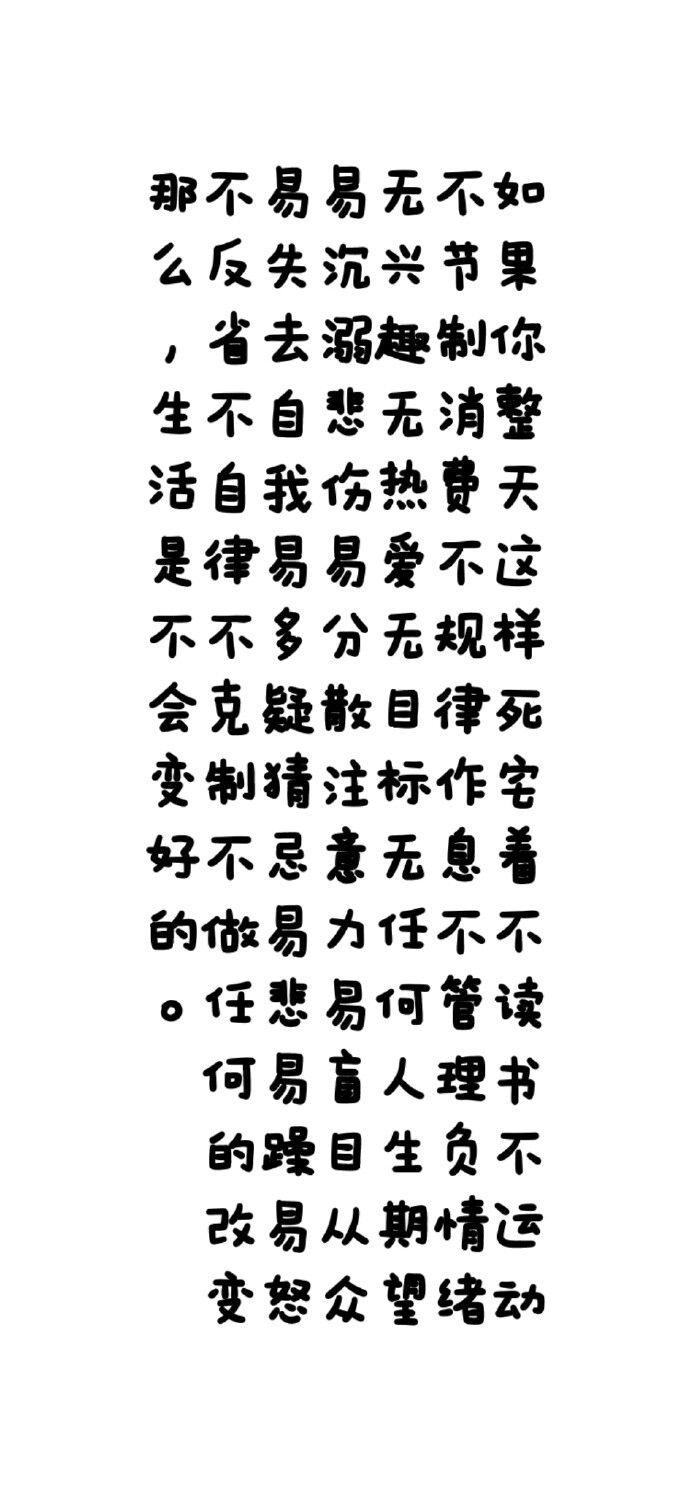 如果你整天这样死宅着不读书不运动
不节制消费不规律作息不管理负情绪
无兴趣无热爱无目标无任何人生期望
易沉溺易悲伤易分散注意力易盲目从众
易失去自我易多疑猜忌易悲易躁易怒
不反省不自律不克制不做任何的改变
那么，生活是不会变好的。